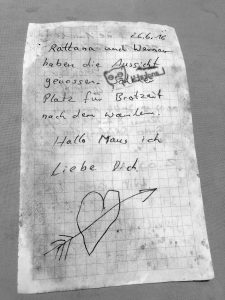 26.6.16
Rattana und Werner
haben die Aussicht
genossen.
Platz für Brotzeit
nach dem wandern.
Hallo Maus ich
Liebe Dich